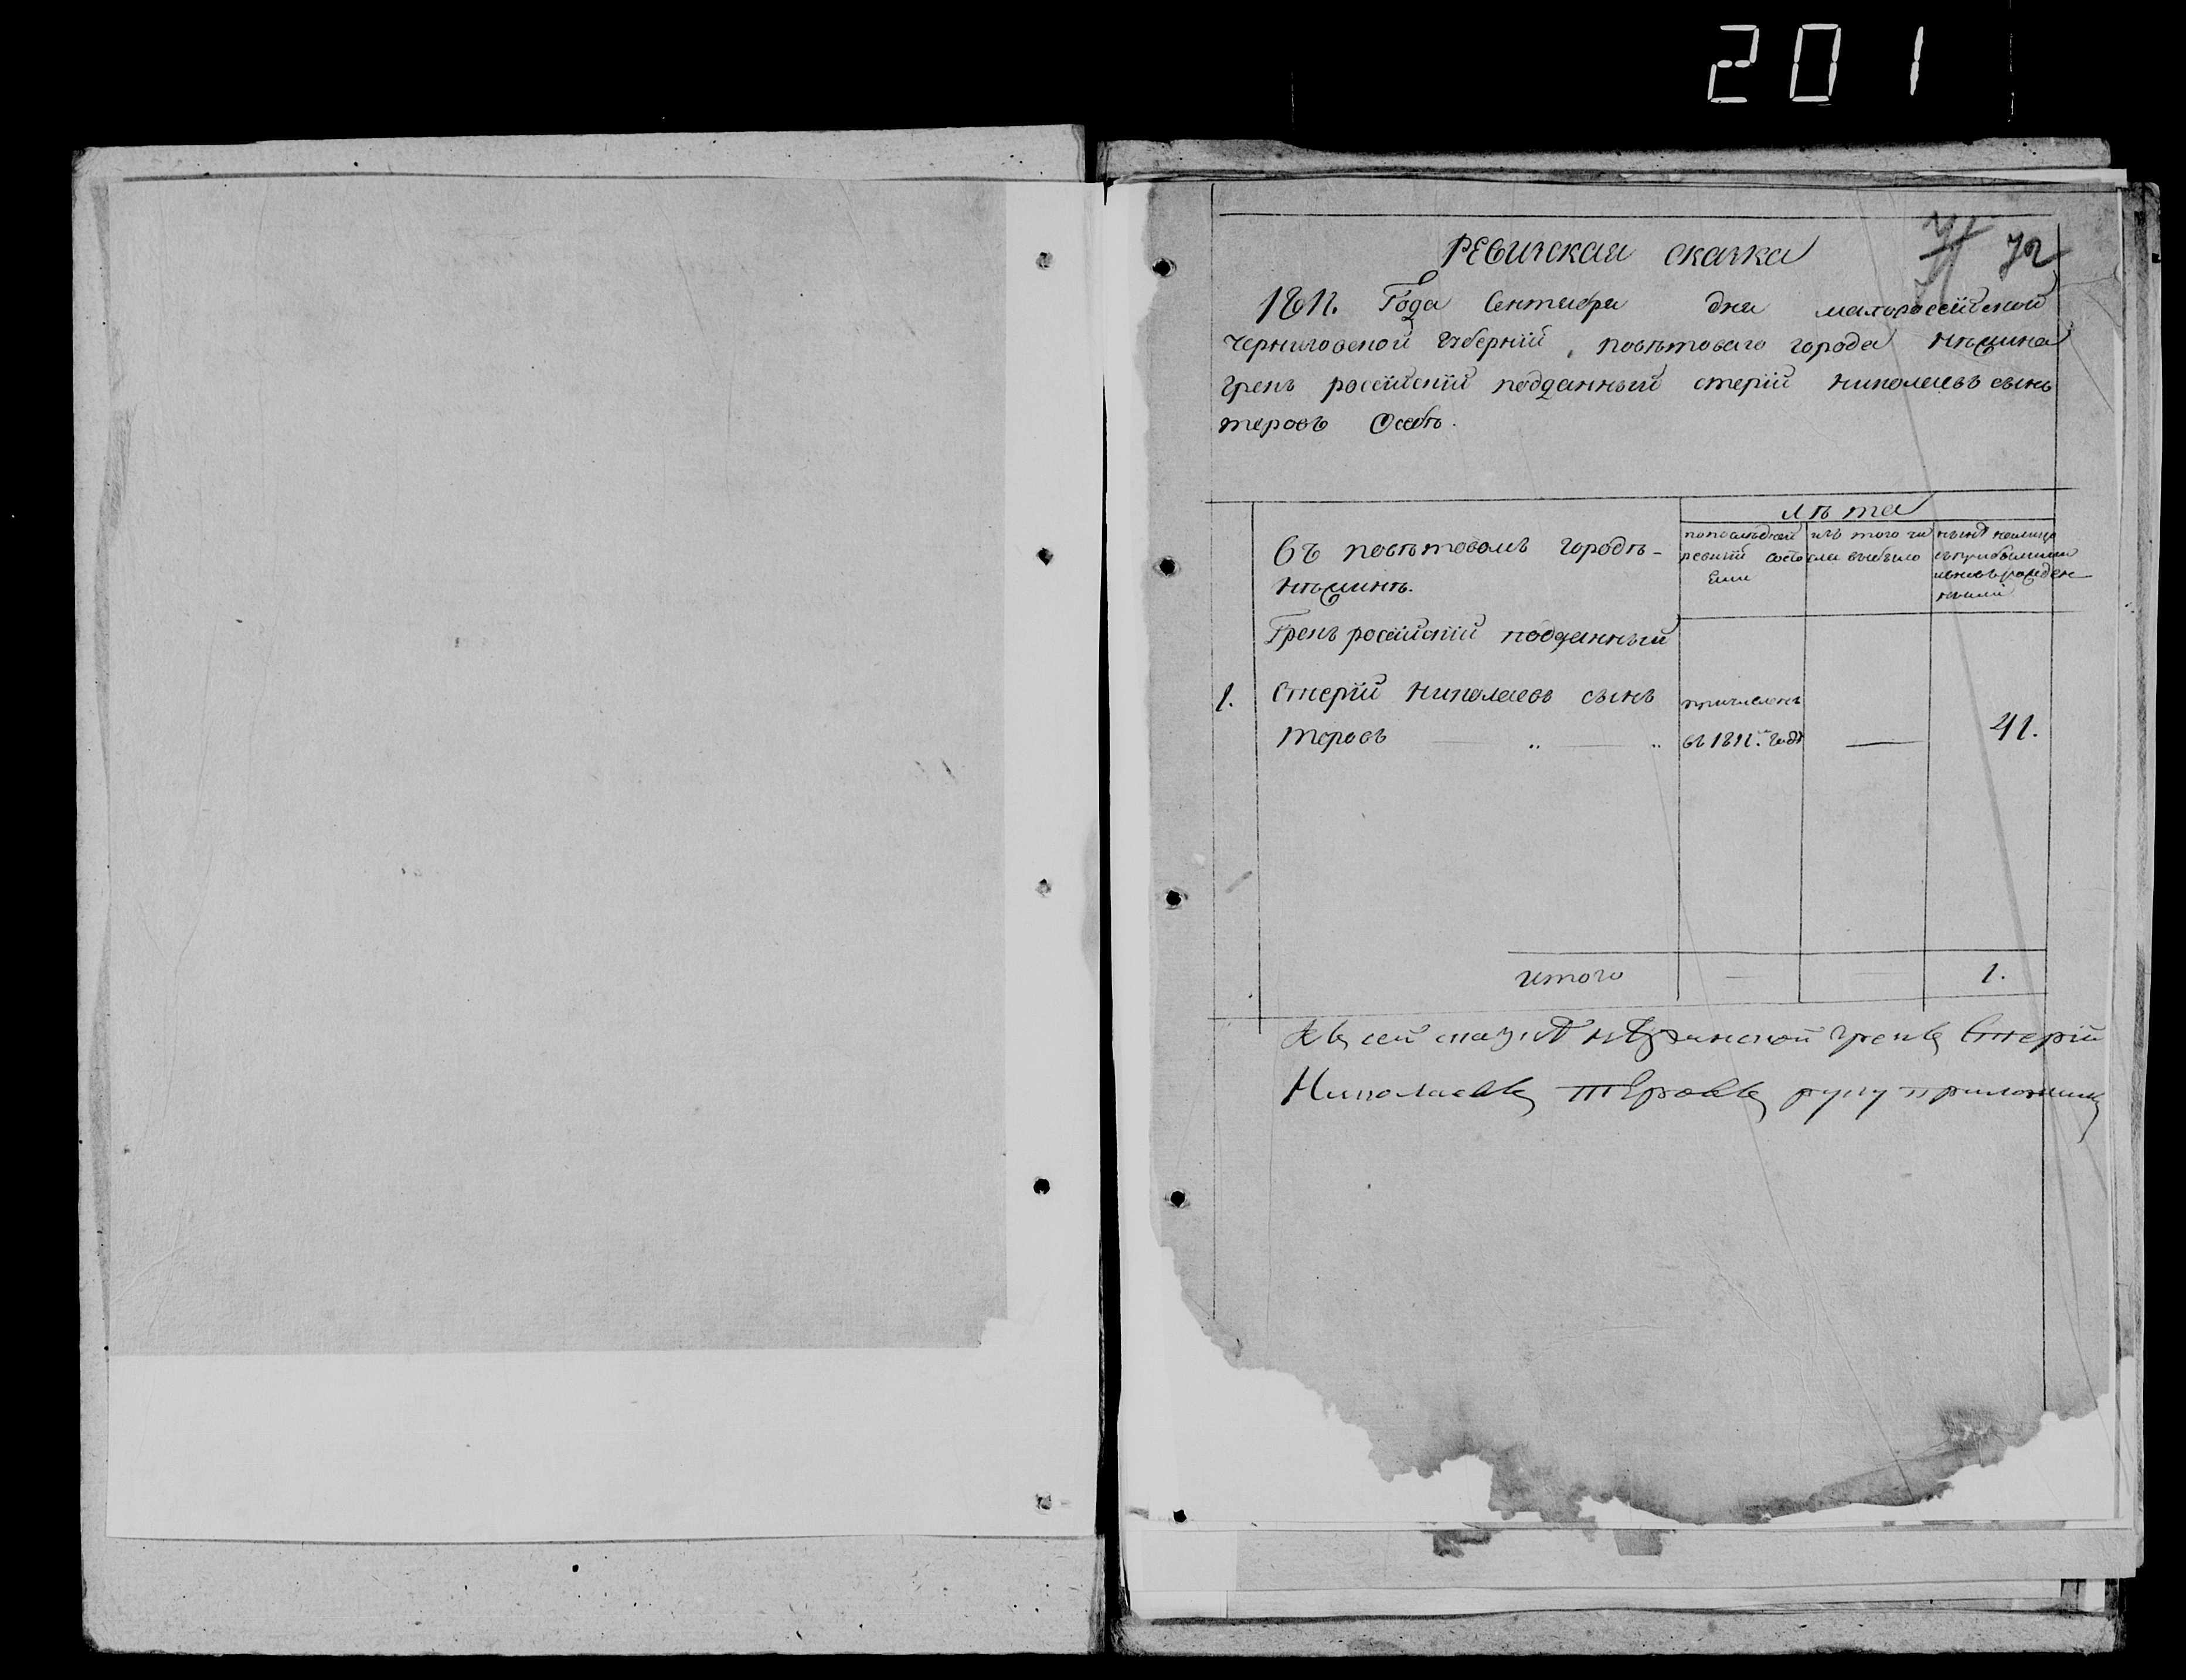 201
72
Ревизская сказка
1811. Года Сентября дня малороссійской
черниговской губерніи, повѣтоваго города Нѣжина
грекъ россійскій подданный стерій николаевъ сынъ
теровъ
лѣта
Въ повѣтовомъ городѣ-
нѣжинѣ.
попослѣдней ревизіи состо
изъ того чи сла выбыло
нынѣ налицо
Грекъ россійскій подданный
1. Стерій Николаевъ сынъ причисленъ
теровъ — „ — „ въ 1811. годѣ — 41.
итого — 1.
Къ сей сказкѣ нѣжинской грекъ Стерій
Николаевъ теровъ руку приложилъ